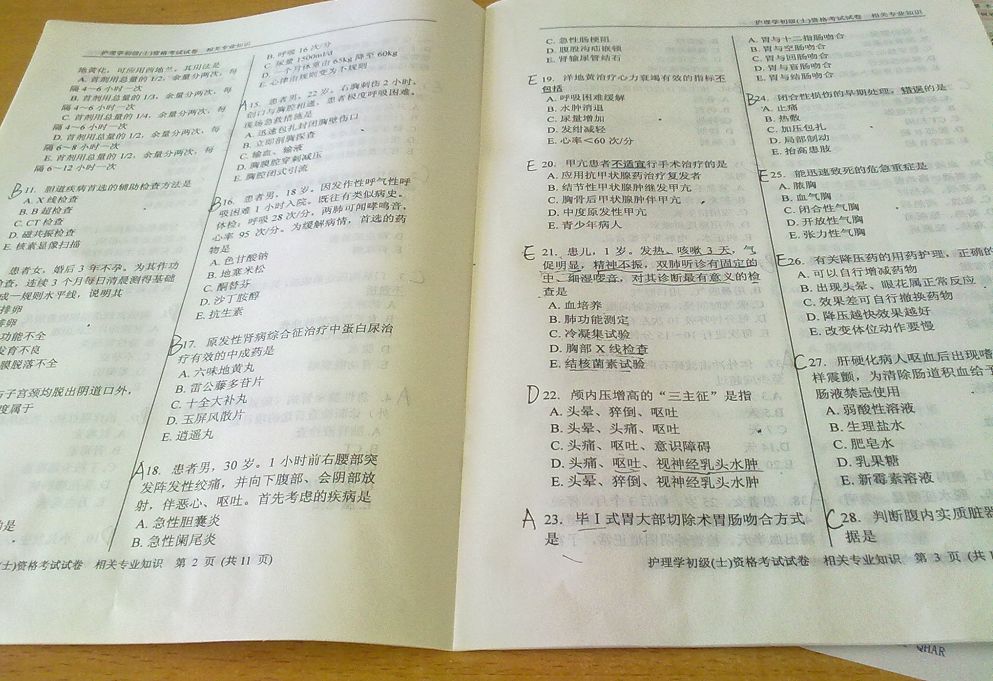 护理学初级(士)资格考试试卷 相关专业知识
地黄化,可应用西地兰,其用法是
A. 首剂用总量的 1/2,余量分两次,每
隔 4～6 小时一次
B. 首剂用总量的 1/3,余量分两次,每
隔 4～6 小时一次
C. 首剂用总量的 1/4,余量分两次,每
隔 4～6 小时一次
D. 首剂用总量的 1/2,余量分两次,每
隔 6～8 小时一次
E. 首剂用总量的 1/2,余量分两次,每
隔 6～12 小时一次
B 11. 胆道疾病首选的辅助检查方法是
A. X 线检查
B. B 超检查
C. CT 检查
D. 磁共振检查
E. 核素显像扫描
患者女,婚后 3 年不孕。为其作功
查,连续 3 个月每日清晨测得基础
成一规则水平线,说明其
排卵
排卵
功能不全
发育不良
膜脱落不全
子宫颈均脱出阴道口外,
度属于
是
B. 呼吸 16 次/分
C. 尿量 1500ml/d
D. 一个月体重由 65kg 降至 60kg
E. 心律由规则变为不规则
A 15. 患者男,22 岁。右胸刺伤 2 小时。
创口与胸腔相通,患者极度呼吸困难。
现场急救措施是
A. 迅速包扎封闭胸壁伤口
B. 立即剖胸探查
C. 输血、输液
D. 胸膜腔穿刺减压
E. 胸腔闭式引流
B 16. 患者男,18 岁。因发作性呼气性呼
吸困难 1 小时入院。既往有类似病史。
体检:呼吸 28 次/分,两肺可闻哮鸣音,
心率 95 次/分。为缓解病情,首选的药
物是
A. 色甘酸钠
B. 地塞米松
C. 酮替芬
D. 沙丁胺醇
E. 抗生素
B 17. 原发性肾病综合征治疗中蛋白尿治
疗有效的中成药是
A. 六味地黄丸
B. 雷公藤多苷片
C. 十全大补丸
D. 玉屏风散片
E. 逍遥丸
A 18. 患者男,30 岁。1 小时前右腰部突
发阵发性绞痛,并向下腹部、会阴部放
射,伴恶心、呕吐。首先考虑的疾病是
A. 急性胆囊炎
B. 急性阑尾炎
(士)资格考试试卷 相关专业知识 第 2 页 (共 11 页)
护理学初级(士)资格考试试卷 相关专业知识
C. 急性肠梗阻
D. 腹股沟疝嵌顿
E. 肾输尿管结石
E 19. 洋地黄治疗心力衰竭有效的指标不
包括
A. 呼吸困难缓解
B. 水肿消退
C. 尿量增加
D. 发绀减轻
E. 心率＜60 次/分
E 20. 甲亢患者不适宜行手术治疗的是
A. 应用抗甲状腺药治疗复发者
B. 结节性甲状腺肿继发甲亢
C. 胸骨后甲状腺肿伴甲亢
D. 中度原发性甲亢
E. 青少年病人
E 21. 患儿,1 岁。发热、咳嗽 3 天,气
促明显,精神不振,双肺听诊有固定的
中、细湿啰音,对其诊断最有意义的检
查是
A. 血培养
B. 肺功能测定
C. 冷凝集试验
D. 胸部 X 线检查
E. 结核菌素试验
D 22. 颅内压增高的“三主征”是指
A. 头晕、猝倒、呕吐
B. 头晕、头痛、呕吐
C. 头痛、呕吐、意识障碍
D. 头痛、呕吐、视神经乳头水肿
E. 头晕、猝倒、视神经乳头水肿
A 23. 毕Ⅰ式胃大部切除术胃肠吻合方式
是
A. 胃与十二指肠吻合
B. 胃与空肠吻合
C. 胃与回肠吻合
D. 胃与盲肠吻合
E. 胃与结肠吻合
B 24. 闭合性损伤的早期处理,错误的是
A. 止痛
B. 热敷
C. 加压包扎
D. 局部制动
E. 抬高患肢
E 25. 能迅速致死的危急重症是
A. 脓胸
B. 血气胸
C. 闭合性气胸
D. 开放性气胸
E. 张力性气胸
E 26. 有关降压药的用药护理,正确的
A. 可以自行增减药物
B. 出现头晕、眼花属正常反应
C. 效果差可自行撤换药物
D. 降压越快效果越好
E. 改变体位动作要慢
C 27. 肝硬化病人呕血后出现嗜
样震颤,为清除肠道积血给予
肠液禁忌使用
A. 弱酸性溶液
B. 生理盐水
C. 肥皂水
D. 乳果糖
E. 新霉素溶液
C 28. 判断腹内实质脏器
据是
护理学初级(士)资格考试试卷 相关专业知识 第 3 页 (共 1
QHAR